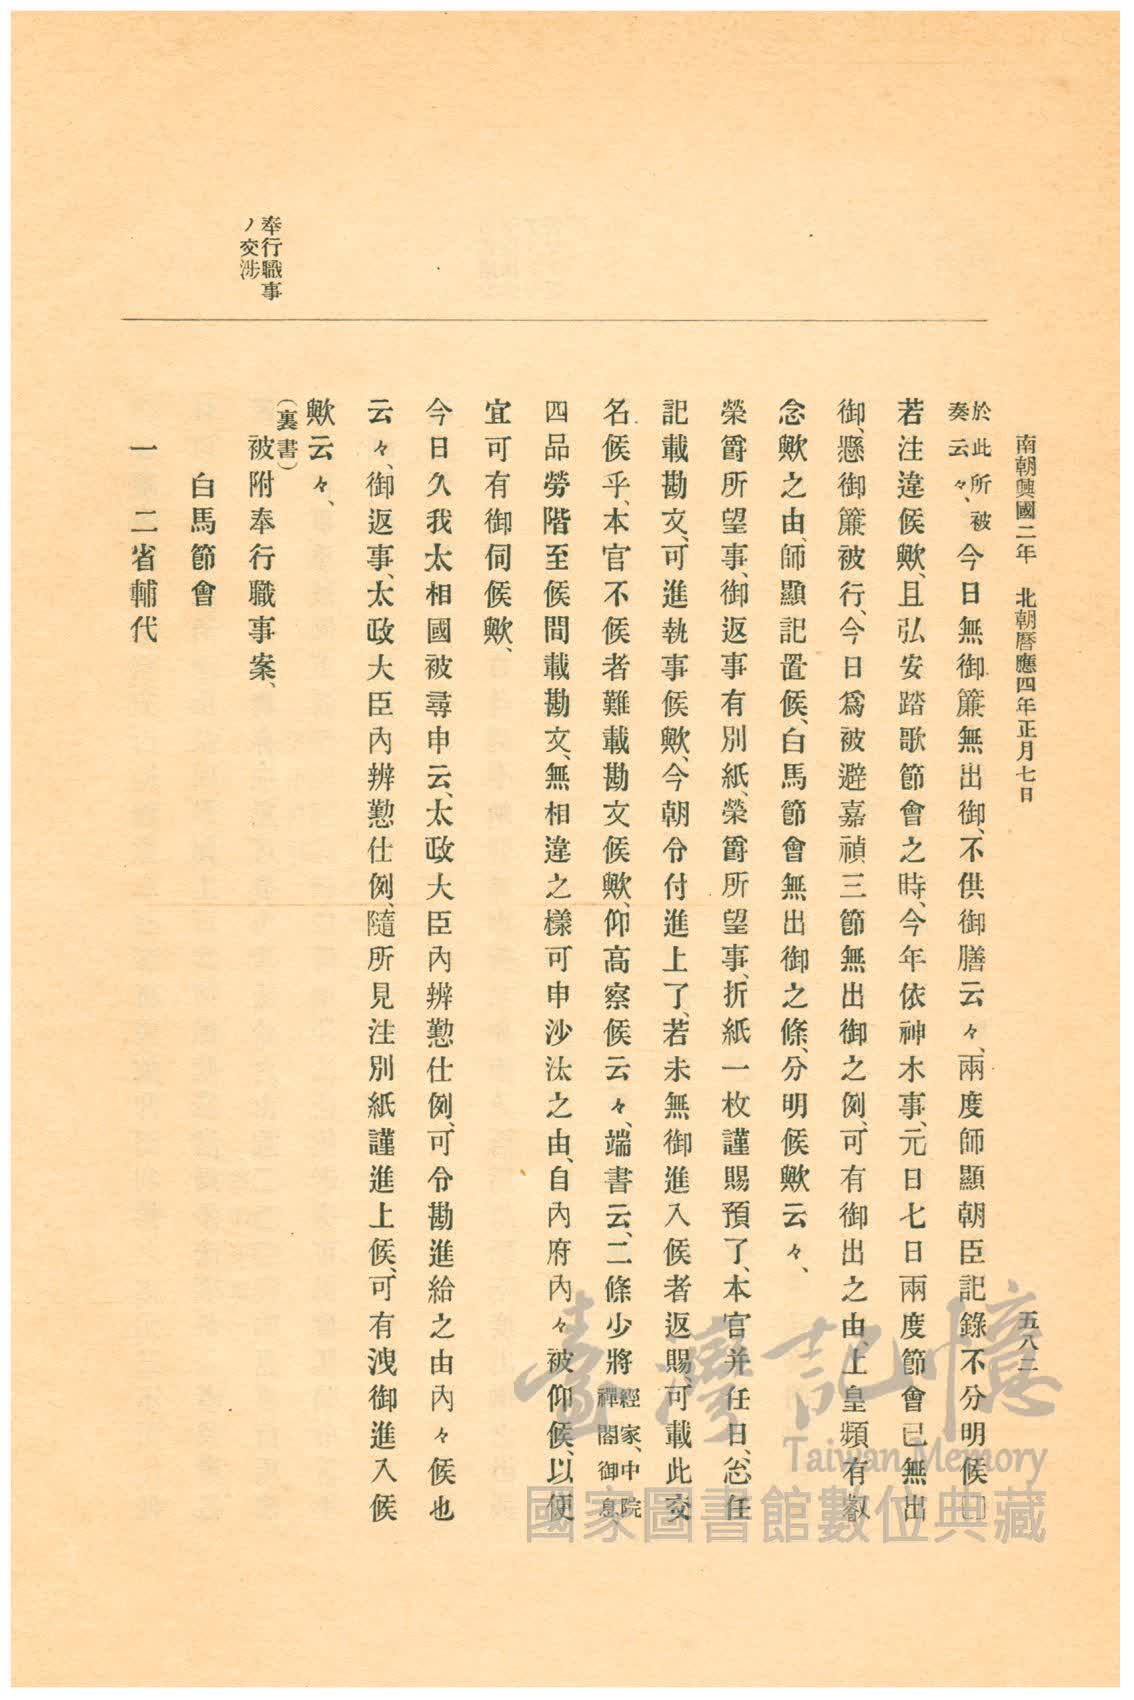 南朝興國二年　北朝曆應四年正月七日
五八二
於此所被奏云々、今日無御簾無出御、不供御膳云々、兩度師顯朝臣記錄不分明候□
若注違候歟、且弘安踏歌節會之時、今年依神木事、元日七日兩度節會已無出
御、懸御簾被行、今日爲被避嘉禎三節無出御之例、可有御出之由、上皇頻有叡
念歟之由、師顯記置候、白馬節會無出御之條、分明候歟云々、
榮爵所望事、御返事有別紙、榮爵所望事、折紙一枚謹賜預了、本官幷任日、忩任
記載勘文、可進執事候歟、今朝令付進上了、若未無御進入候者返賜、可載此交
名候乎、本官不候者難載勘文候歟、仰高察候云々、端書云、二條少將經家、中院禪閤御息
四品勞階至候間載勘文、無相違之樣可申沙汰之由、自內府內々被仰候、以便
宜可有御伺候歟、
今日久我太相國被尋申云、太政大臣內辨懃仕例、可令勘進給之由內々候也
云々、御返事、太政大臣內辨懃仕例、隨所見注別紙謹進上候、可有洩御進入候
歟云々、
（裏書）
被附奉行職事案、
白馬節會
一　二省輔代
奉行職事
ノ交涉
臺灣記憶
Taiwan Memory
國家圖書館數位典藏